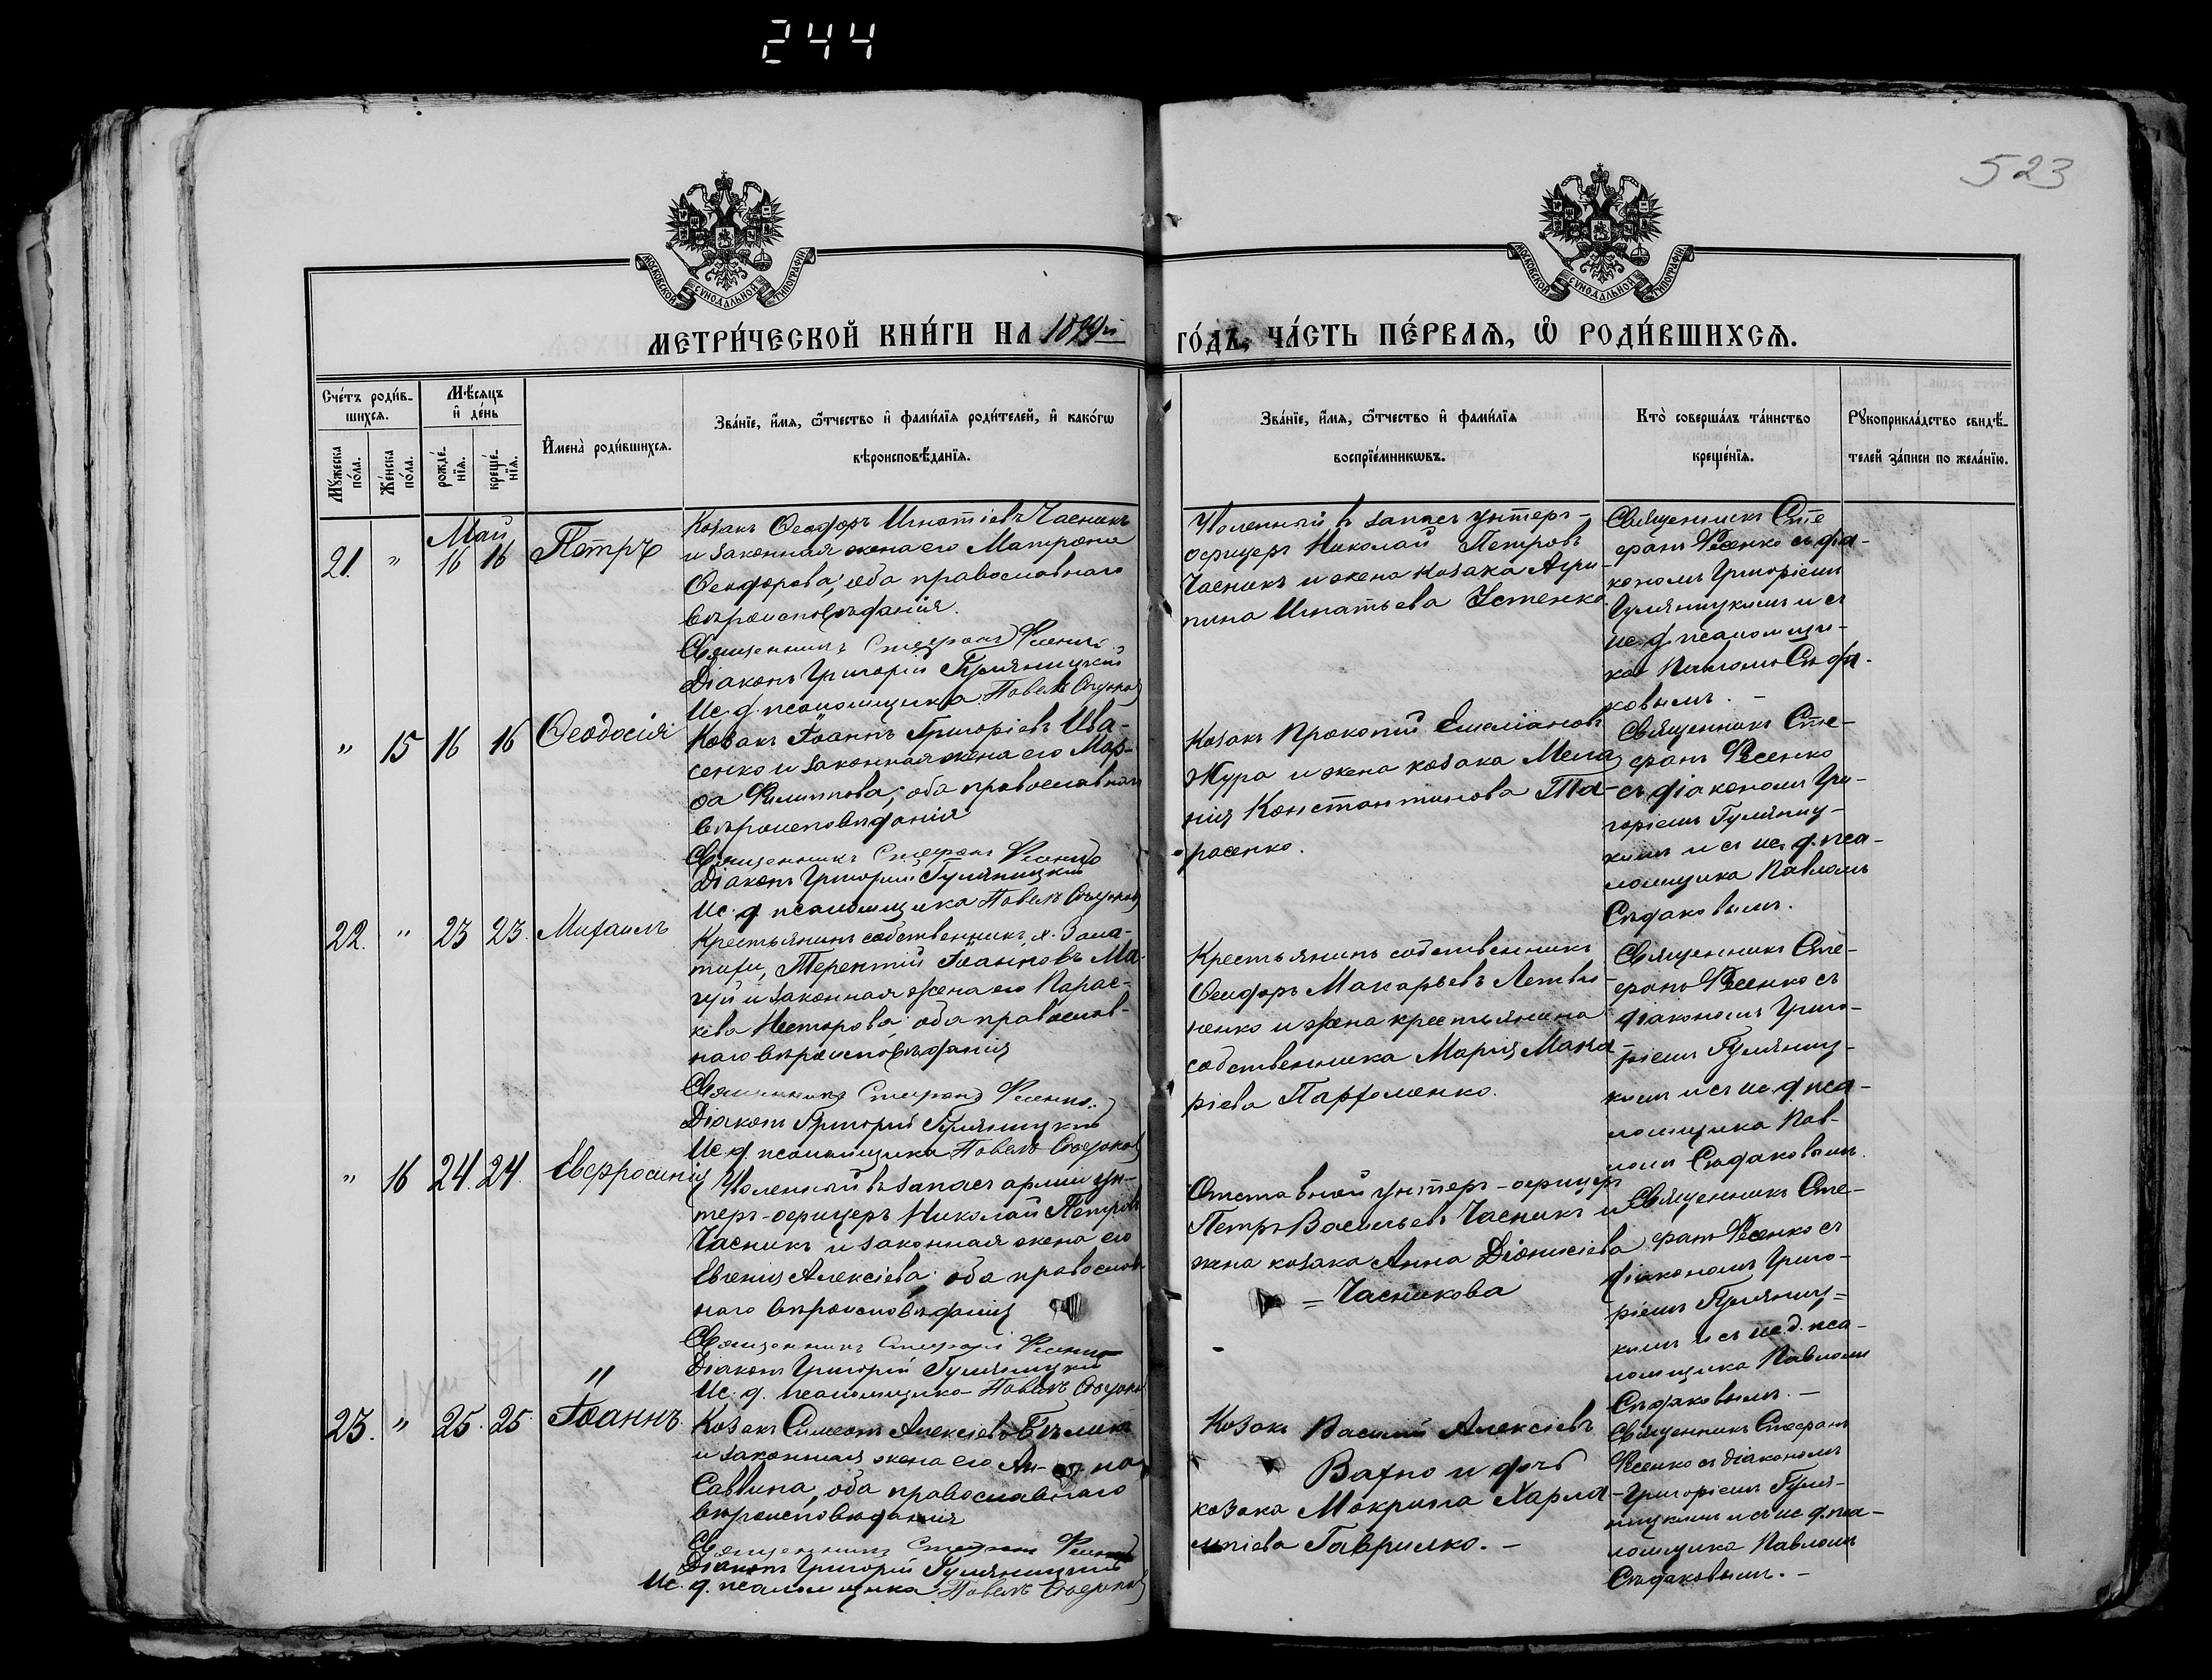 244
523
МОСКОВСКОЙ СѴНОДАЛЬНОЙ ТИПОГРАФІИ
МОСКОВСКОЙ СѴНОДАЛЬНОЙ ТИПОГРАФІИ
МЕТРИ́ЧЕСКОЙ КНИ́ГИ НА 1899й ГО́ДЪ, ЧА́СТЬ ПЕ́РВАѦ, Ѡ҆ РОДИ́ВШИХСѦ.
Сче́тъ роди́в-
шихся.
Мꙋжеска по́ла.
Же́нска по́ла.
Мѣ́сяцъ и҆ де́нь
рожде́-
нїя.
креще́-
нїя.
И҆мена̀ роди́вшихся.
Зва́нїе, и҆́мя, ѻ҆́тчество и҆ фами́лїя роди́телей, и҆ како́гѡ
вѣроисповѣ́данїя.
Зва́нїе, и҆́мя, ѻ҆́тчество и҆ фами́лїя
воспрїе́мниковъ.
Кто̀ соверша́лъ та́инство
креще́нїя.
Рꙋкоприкла́дство свидѣ́-
телей за́писи по жела́нїю.
Май
21. " 16 16 Петръ
Козакъ Ѳеодоръ Игнатіевъ Часникъ
и законная жена его Матрона
Ѳеодорова; оба православнаго
вѣроисповѣданія.
Священникъ Стефанъ Фесенко
Діаконъ Григорій Гуляницкій
Ис. д. псаломщика Павелъ Сѣдаковъ
Уволенный въ запасъ унтеръ-
офицеръ Николай Петровъ
Часникъ и жена козака Агри-
пина Игнатьева Устенко
Священникъ Сте
фанъ Фесенко съ діа-
кономъ Григоріемъ
Гуляницкимъ и съ
ис. д. псаломщи-
ка Павломъ Сѣда-
ковымъ. -
" 15 16 16 Ѳеодосія
Козакъ Іоаннъ Григоріевъ Ива-
сенко и законная жена его Мар-
ѳа Филиппова; оба православнаго
вѣроисповѣданія
Священникъ Стефанъ Фесенко
Діаконъ Григорій Гуляницкій
Ис. д. псаломщика Павелъ Сѣдаковъ
Козакъ Прокопій Емеліановъ
Жура и жена козака Мела
нія Константинова Та-
расенко.
Священникъ Сте-
фанъ Фесенко
съ діакономъ Гри-
горіемъ Гуляниц-
кимъ и съ ис. д. пса-
ломщика Павломъ
Сѣдаковымъ.
22. " 23 23. Михаилъ
Крестьянинъ собственникъ, х.
Терентій Іоанновъ Ма-
гуй и законная жена его Парас-
кева Несторова; оба православ-
наго вѣроисповѣданія
Священникъ Стефанъ Фесенко.
Діаконъ Григорій Гуляницкій
Ис. д. псаломщика Павелъ Сѣдаковъ
Крестьянинъ собственникъ
Ѳеодоръ Макарьевъ Летви-
ненко и жена крестьянина
собственника Марія Мака-
ріева Парфоменко.
Священникъ Сте-
фанъ Фесенко съ
діакономъ Григо-
ріемъ Гуляниц-
кимъ и съ ис. д. пса-
ломщика Пав-
ломъ Сѣдаковымъ.
" 16 24. 24. Евфросинія
Уволенный въ запасъ арміи ун-
теръ-офицеръ Николай Петровъ
Часникъ и законная жена его
Евгенія Алексіева; оба православ-
наго вѣроисповѣданія
Священникъ Стефанъ Фесенко
Діаконъ Григорій Гуляницкій
Ис. д. псаломщика Павелъ Сѣдаковъ
Отставной унтеръ-офицеръ
Петръ Васильевъ Часникъ и
жена козака Анна Діонисіева
= Часникова
Священникъ Сте-
фанъ Фесенко съ
діакономъ Григо-
ріемъ Гуляниц-
кимъ и съ ис. д. пса-
ломщика Павломъ
Сѣдаковымъ. -
"
23. " 25. 25. Іоаннъ.
Козакъ Симеонъ Алексіевъ
и законная жена его Ан-на
Саввина, оба православнаго
вѣроисповѣданія
Священникъ Стефанъ Фесенко
Діаконъ Григорій Гуляницкій
Ис. д. псаломщика Павелъ Сѣдаковъ
Козакъ Василій Алексіевъ
Вахно и дочь
козака Макрина Харла-
мпіева Гаврилко. -
Священникъ Стефанъ
Фесенко съ діакономъ
Григоріемъ Гуля-
ницкимъ и съ ис. д. пса-
ломщика Павломъ
Сѣдаковымъ. -